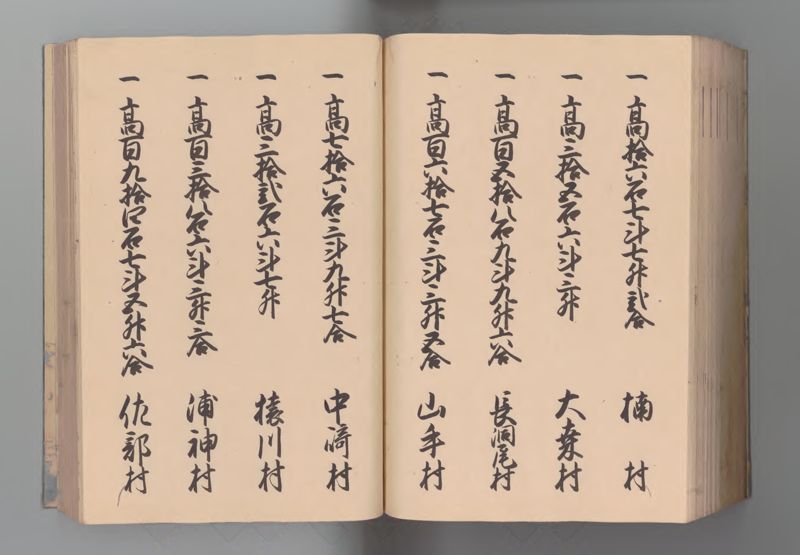 一 高拾六石七斗七升弐合 楠村
一 高三拾五石六斗三升 大桑村
一 高百五拾八石九斗九升六合 長洞尾村
一 高百六拾七石三斗三升五合 山手村
一 高七拾六石三斗九升七合 中崎村
一 高三拾弐石六斗七升 猿川村
一 高百三拾八石六斗三升三合 浦神村
一 高百九拾四石七斗五升六合 佐部村